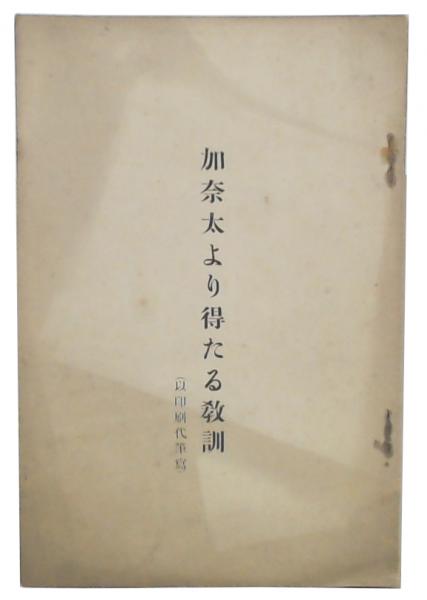 加奈太より得たる教訓
(以印刷代筆寫)